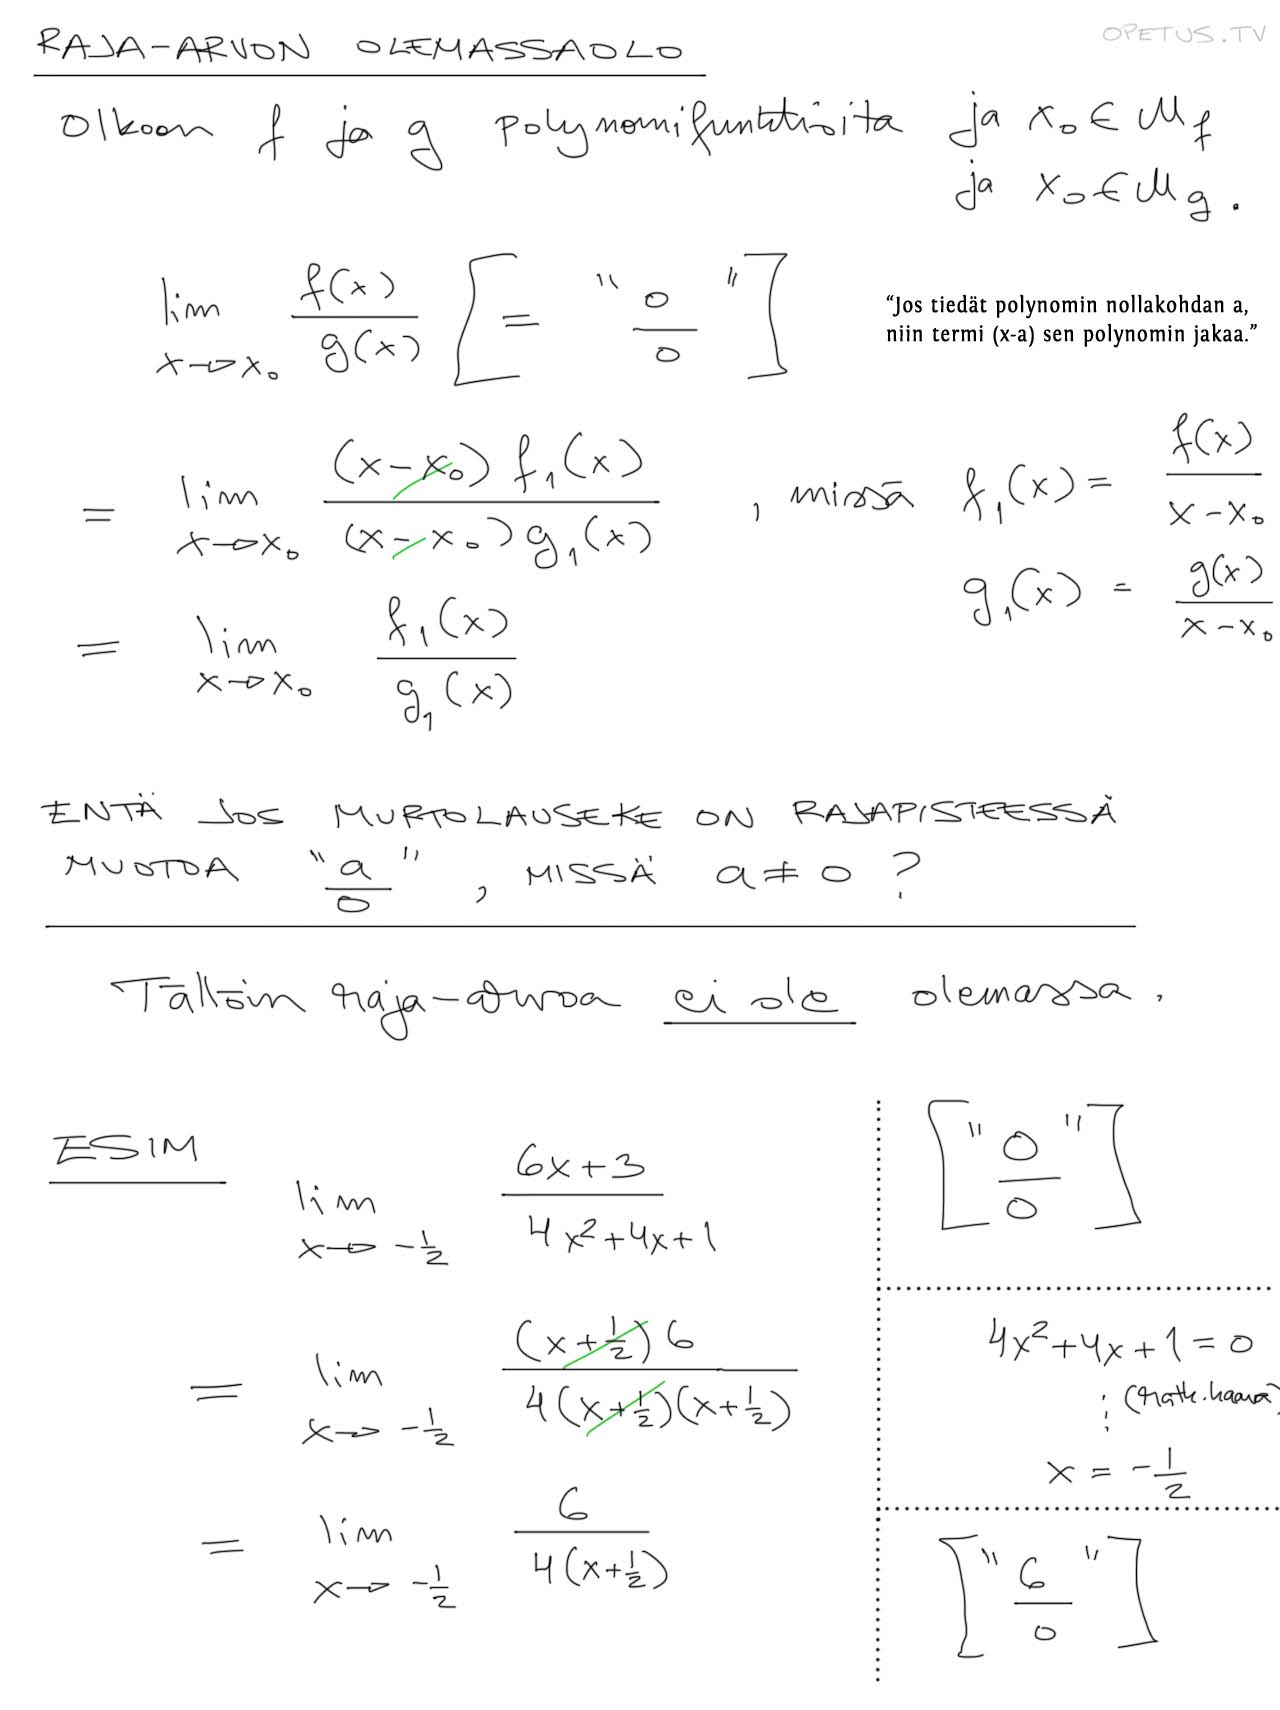 RAJA-ARVON OLEMASSAOLO
OPETUS.TV
Olkoon f ja g polynomifunktioita ja x₀ ∈ M_f
ja x₀ ∈ M_g.
lim x→x₀ f(x)/g(x) [= "0/0"]
"Jos tiedät polynomin nollakohdan a,
niin termi (x-a) sen polynomin jakaa."
= lim x→x₀ (x-x₀) f₁(x) / (x-x₀) g₁(x) , missä f₁(x) = f(x)/(x-x₀)
g₁(x) = g(x)/(x-x₀)
= lim x→x₀ f₁(x)/g₁(x)
ENTÄ JOS MURTOLAUSEKE ON RAJAPISTEESSÄ
MUOTOA "a/0", MISSÄ a≠0?
Tällöin raja-arvoa ei ole olemassa.
ESIM
lim x→-1/2 (6x+3)/(4x²+4x+1)
["0/0"]
= lim x→-1/2 (x+1/2)6 / 4(x+1/2)(x+1/2)
4x²+4x+1=0
⋮ (ratk.kaava)
x = -1/2
= lim x→-1/2 6 / 4(x+1/2)
["6/0"]